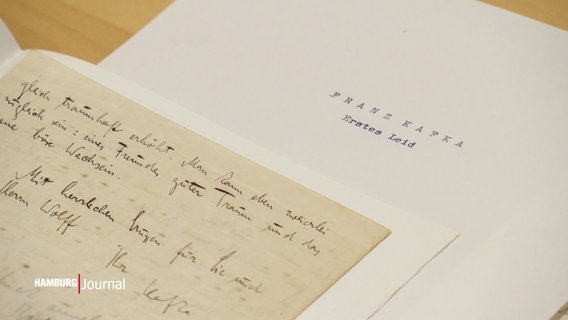 FRANZ KAFKA
Erstes Leid
gleich traumhaft erhöht. Man kann eben zweierlei
zugleich sein: eines Freundes guter Traum und das
böse Wachsein.
Mit herzlichen Grüßen für Sie und
Herrn Wolff
Ihr Kafka
HAMBURG Journal